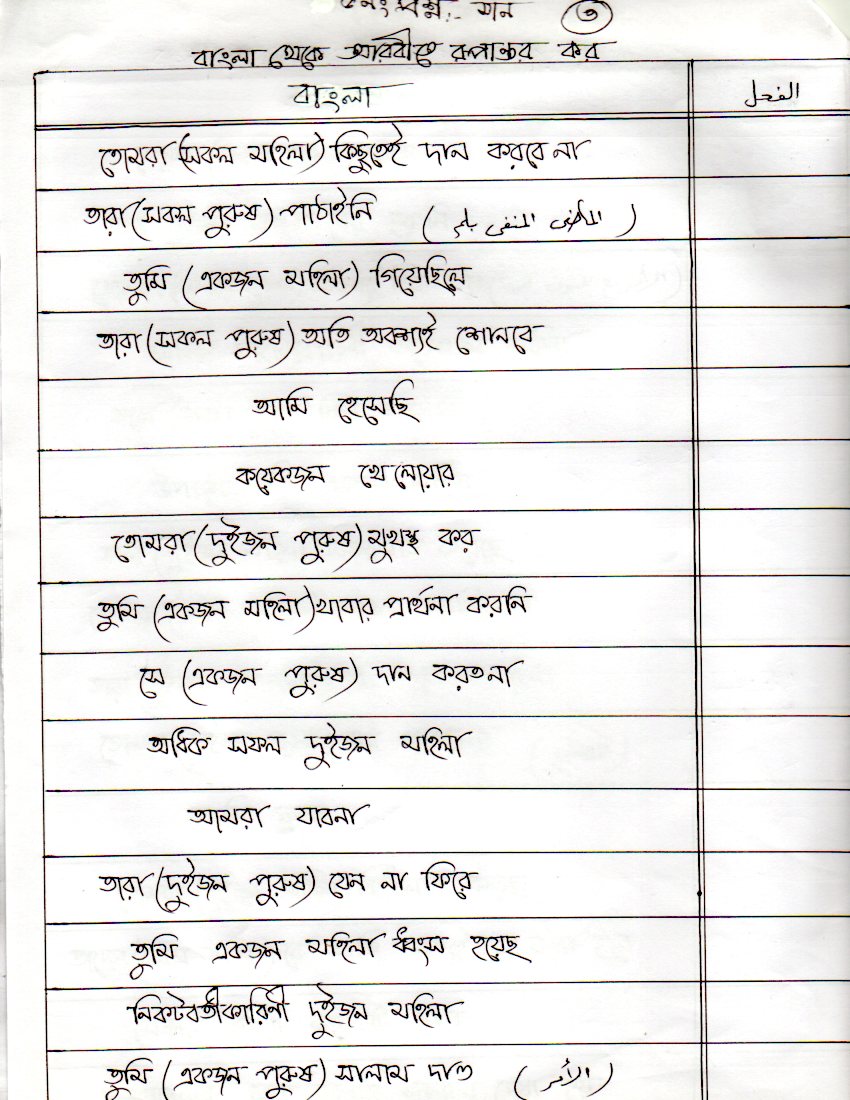 ৫নং প্রশ্ন:- মান ৩
বাংলা থেকে আরবীতে রুপান্তর কর
বাংলা الفعل
তোমরা (সকল মহিলা) কিছুতেই দান করবে না
তারা (সকল পুরুষ) পাঠাইনি (الماضى المنفى بلم)
তুমি (একজন মহিলা) গিয়েছিলে
তারা (সকল পুরুষ) অতি অবশ্যই শোনবে
আমি হেসেছি
কয়েকজন খেলোয়ার
তোমরা (দুইজন পুরুষ) মুখস্থ কর
তুমি (একজন মহিলা) খাবার প্রার্থনা করনি
সে (একজন পুরুষ) দান করতনা
অধিক সফল দুইজন মহিলা
আমরা যাবনা
তারা (দুইজন পুরুষ) যেন না ফিরে
তুমি একজন মহিলা ধ্বংস হয়েছ
নিকটবর্তীকারিণী দুইজন মহিলা
তুমি (একজন পুরুষ) সালাম দাও (الأمر)